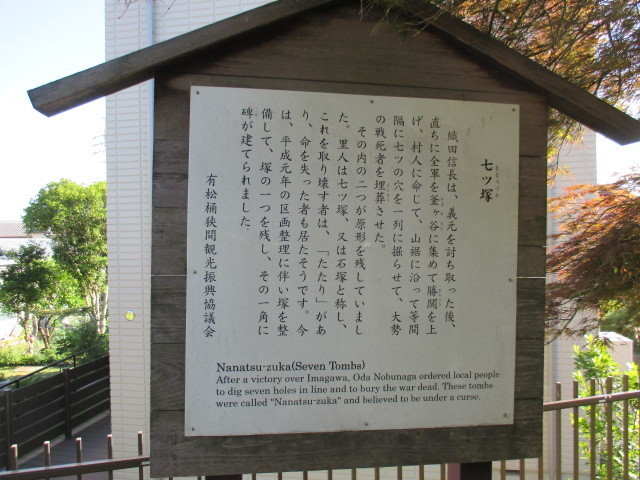 七ツ塚
織田信長は、義元を討ち取った後、
直ちに全軍を釜ヶ谷に集めて勝鬨を上
げ、村人に命じて、山裾に沿って等間
隔に七ツの穴を一列に掘らせて、大勢
の戦死者を埋葬させた。
その内の二つが原形を残していまし
た。里人は七ツ塚、又は石塚と称し、
これを取り壊す者は、「たたり」があ
り、命を失った者も居たそうです。今
は、平成元年の区画整理に伴い塚を整
備して、塚の一つを残し、その一角に
碑が建てられました。
有松桶狭間観光振興協議会
Nanatsu-zuka(Seven Tombs)
After a victory over Imagawa, Oda Nobunaga ordered local people
to dig seven holes in line and to bury the war dead. These tombs
were called "Nanatsu-zuka" and believed to be under a curse.